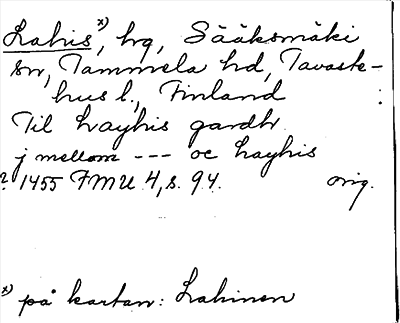 Lahis x), hg, Sääksmäki
sn, Tammela hd, Tavaste-
hus l., Finland
Til Layhis gardh
j mellom --- oc Layhis
? 1455 FMU 4, s. 94. orig.
x) på kartan: Lahinen